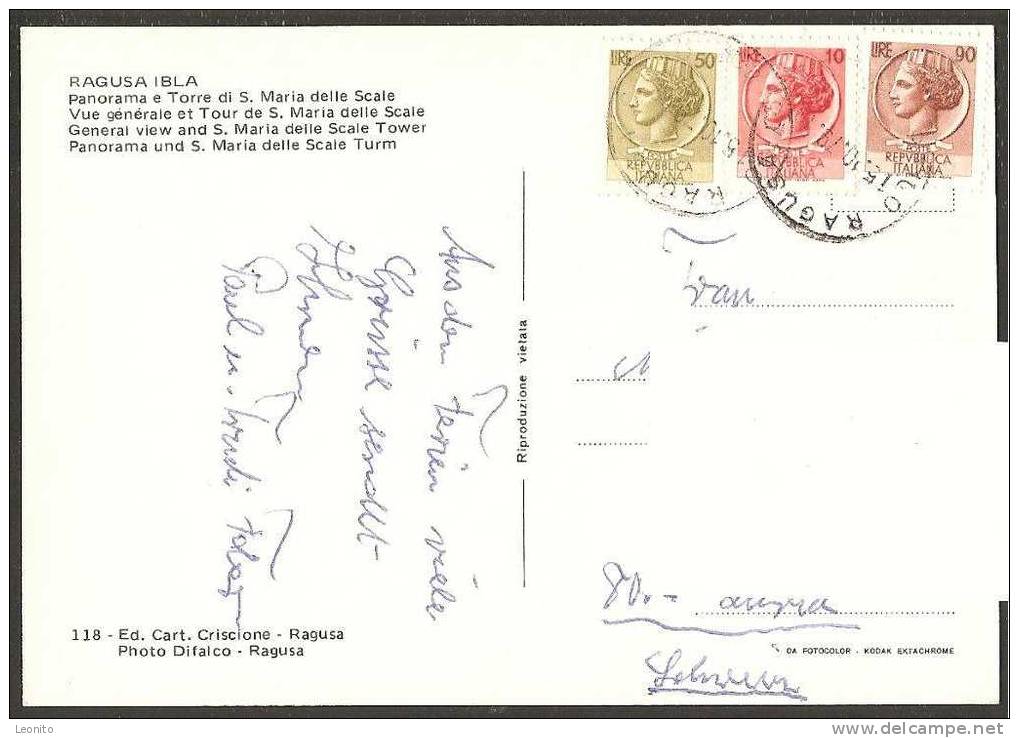 RAGUSA IBLA
Panorama e Torre di S. Maria delle Scale
Vue générale et Tour de S. Maria delle Scale
General view and S. Maria delle Scale Tower
Panorama und S. Maria delle Scale Turm
LIRE 50
POSTE
REPVBBLICA
ITALIANA
LIRE 10
POSTE
REPVBBLICA
ITALIANA
LIRE 90
POSTE
REPVBBLICA
ITALIANA
RAGUSA
Aus den Ferien viele
Grüsse sendet
Paul u. Trudi
Riproduzione vietata
Schweiz
118 - Ed. Cart. Criscione - Ragusa
Photo Difalco - Ragusa
DA FOTOCOLOR - KODAK EKTACHROME
Leonito
www.delcampe.net